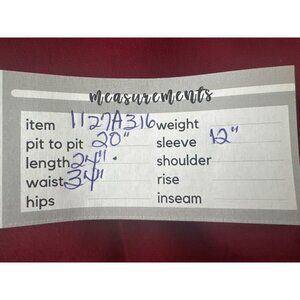 measurements
item 1127A316 weight
pit to pit 20" sleeve 12"
length 24" shoulder
waist 34" rise
hips inseam